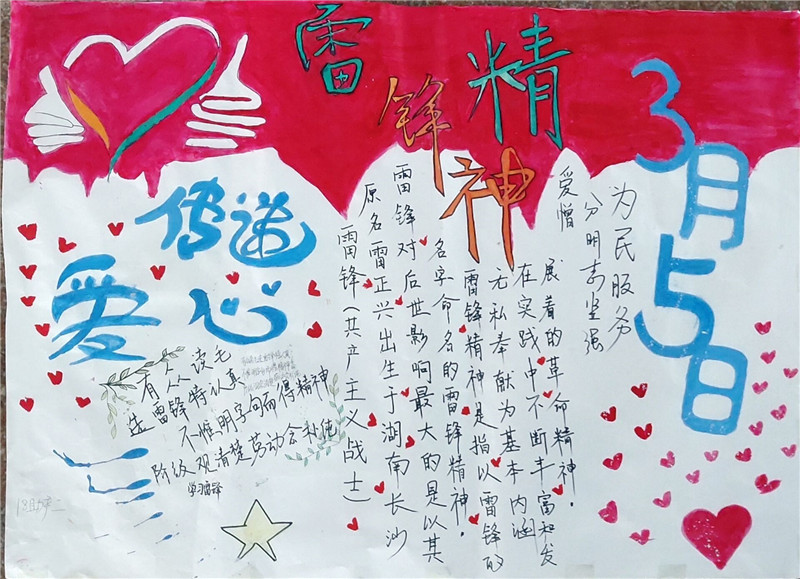 雷锋精神
3月5日
传递
爱心
雷锋（共产主义战士）
原名雷正兴出生于湖南长沙
雷锋对后世影响最大的是以其
名字命名的雷锋精神。
雷锋精神是指以雷锋的
无私奉献为基本内涵
在实践中不断丰富和发
展着的革命精神。
爱憎
分明志坚强
为民服务
有人从读毛
选雷锋特认真
不惟明字句而得精神
阶级观清楚劳动会补纯
学习雷锋